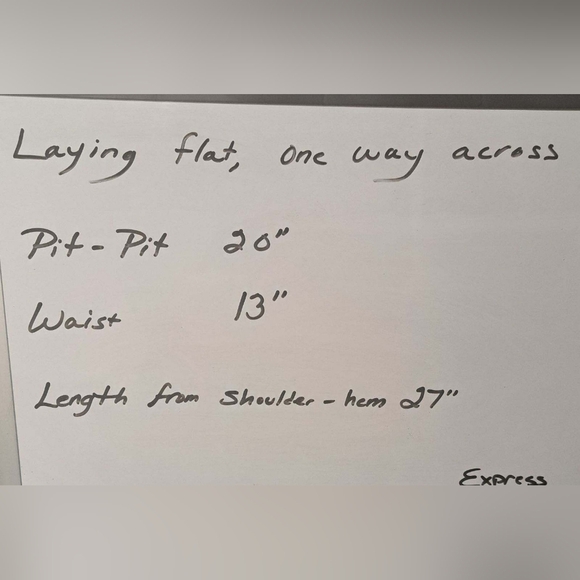 Laying flat, one way across
Pit-Pit 20"
Waist 13"
Length from shoulder-hem 27"
Express